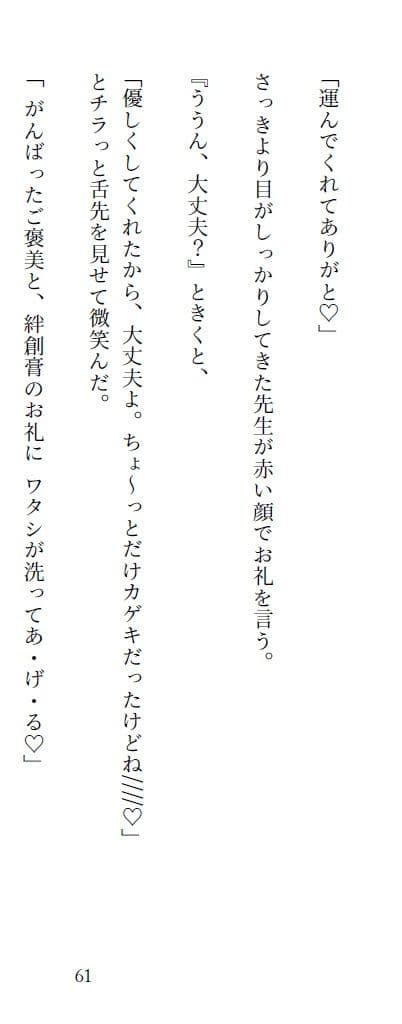 「運んでくれてありがと♡」
さっきより目がしっかりしてきた先生が赤い顔でお礼を言う。
『ううん、大丈夫?』ときくと、
「優しくしてくれたから、大丈夫よ。ちょ～っとだけカゲキだったけどね/////♡」
とチラっと舌先を見せて微笑んだ。
「 がんばったご褒美と、絆創膏のお礼に ワタシが洗ってあ・げ・る♡」
61